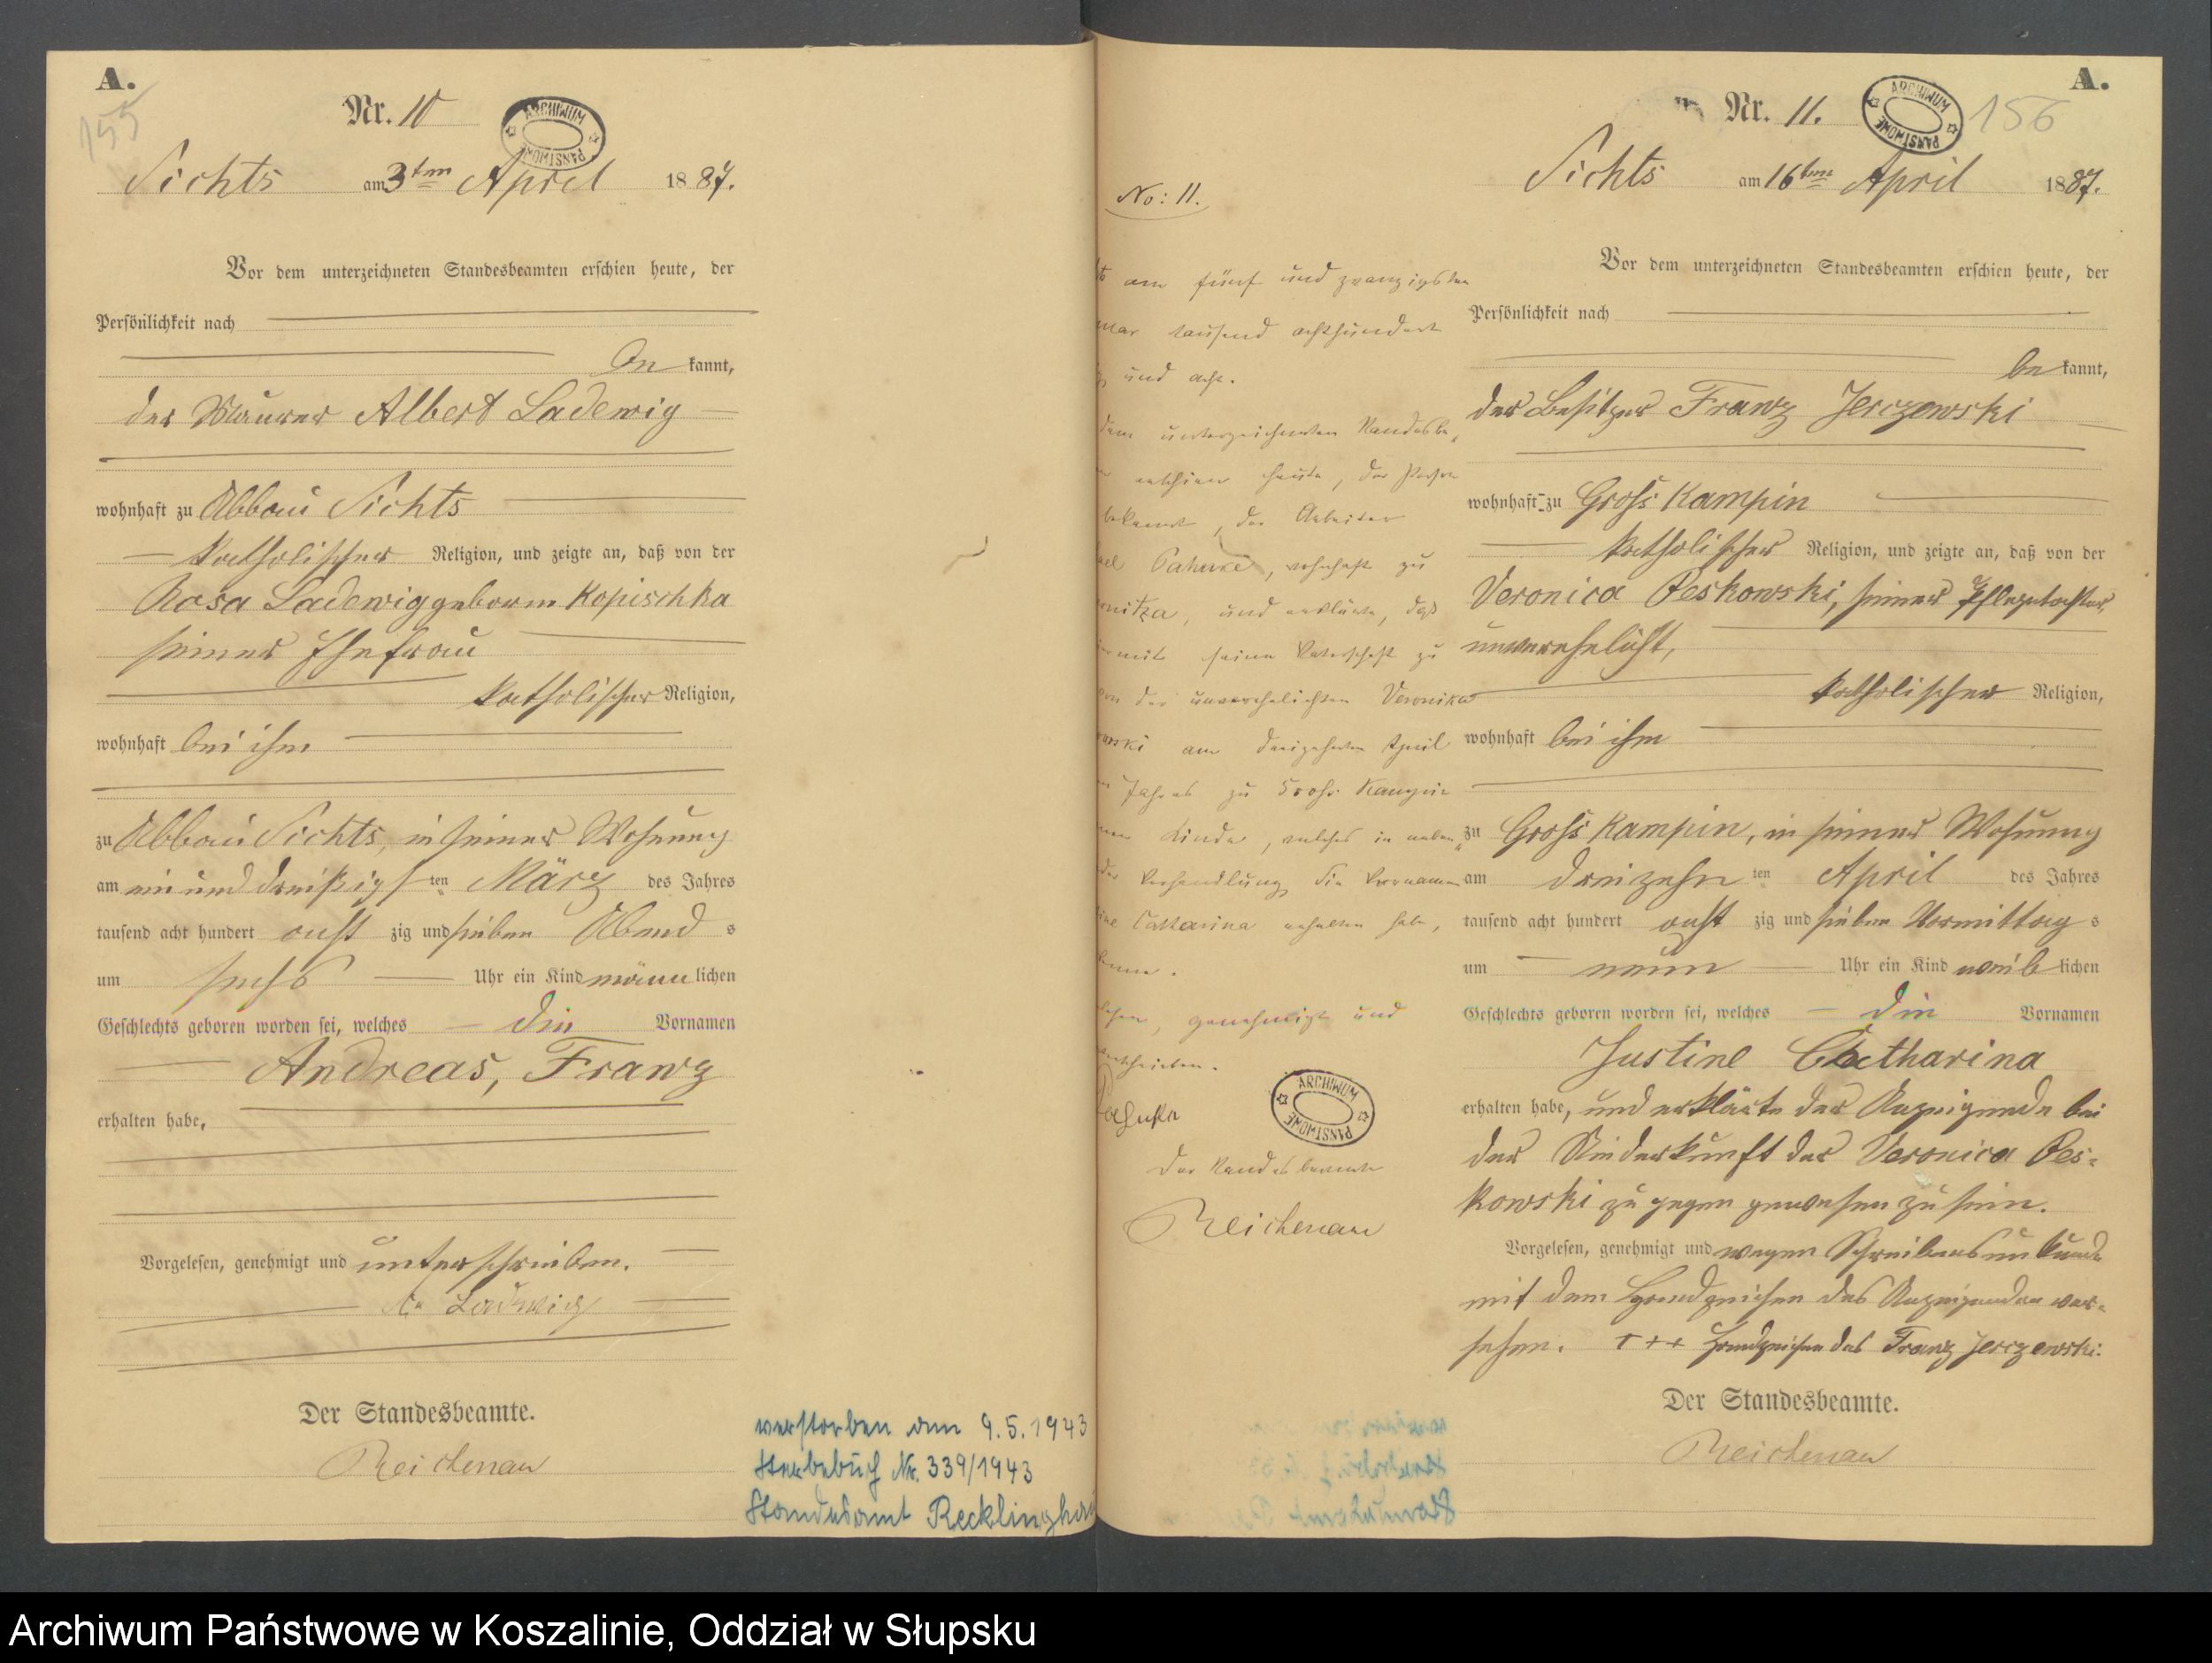 A.
155
Nr. 10
ARCHIWUM PAŃSTWOWE
Sichts am 3ten April 1887.
Vor dem unterzeichneten Standesbeamten erschien heute, der
Persönlichkeit nach
be kannt,
der Maurer Albert Ladewig
wohnhaft zu Abbau Sichts
katholischer Religion, und zeigte an, daß von der
Rosa Ladewig geboren Kopischka
seiner Ehefrau
katholischer Religion,
wohnhaft bei ihm
zu Abbau Sichts, in seiner Wohnung
am ein und dreißigsten März des Jahres
tausend acht hundert acht zig und sieben Abend s
um sechs Uhr ein Kind männ lichen
Geschlechts geboren worden sei, welches die Vornamen
Andreas, Franz
erhalten habe,
Vorgelesen, genehmigt und unterschrieben.
A. Ladewig
Der Standesbeamte.
Reichenau
verstorben am 9.5.1943
Sterbebuch Nr. 339/1943
Standesamt Recklinghau
No: 11.
am fünf und zwanzigsten
tausend achthundert
und acht.
unterzeichneten Standesbe-
erschien heute, der Person
bekannt, der Arbeiter
Pahnke, wohnhaft zu
und erklärte, daß
seine Vaterschaft zu
der unverehelichten Veronika
am dreizehnten April
Jahres zu Groß Kampin
Kinde, welches in neben-
Verhandlung die Vornamen
Catharina erhalten habe,
genehmigt und
ARCHIWUM PAŃSTWOWE
Der Standesbeamte
Reichenau
A.
Nr. 11.
ARCHIWUM PAŃSTWOWE
156
Sichts am 16ten April 1887.
Vor dem unterzeichneten Standesbeamten erschien heute, der
Persönlichkeit nach
be kannt,
der Besitzer Franz Jerczewski
wohnhaft zu Groß Kampin
katholischer Religion, und zeigte an, daß von der
Veronica Peskowski, seiner Pflegetochter,
unverehelicht,
katholischer Religion,
wohnhaft bei ihm
zu Groß Kampin, in seiner Wohnung
am dreizehn ten April des Jahres
tausend acht hundert acht zig und sieben Vormittag s
um neun Uhr ein Kind weib lichen
Geschlechts geboren worden sei, welches die Vornamen
Justine Catharina
erhalten habe, und erklärte der Anzeigende bei
der Niederkunft der Veronica Pes-
kowski zugegen gewesen zu sein.
Vorgelesen, genehmigt und wegen Schreibensunkunde
mit dem Handzeichen des Anzeigenden ver-
sehen. +++ Handzeichen des Franz Jerczewski.
Der Standesbeamte.
Reichenau
Archiwum Państwowe w Koszalinie, Oddział w Słupsku